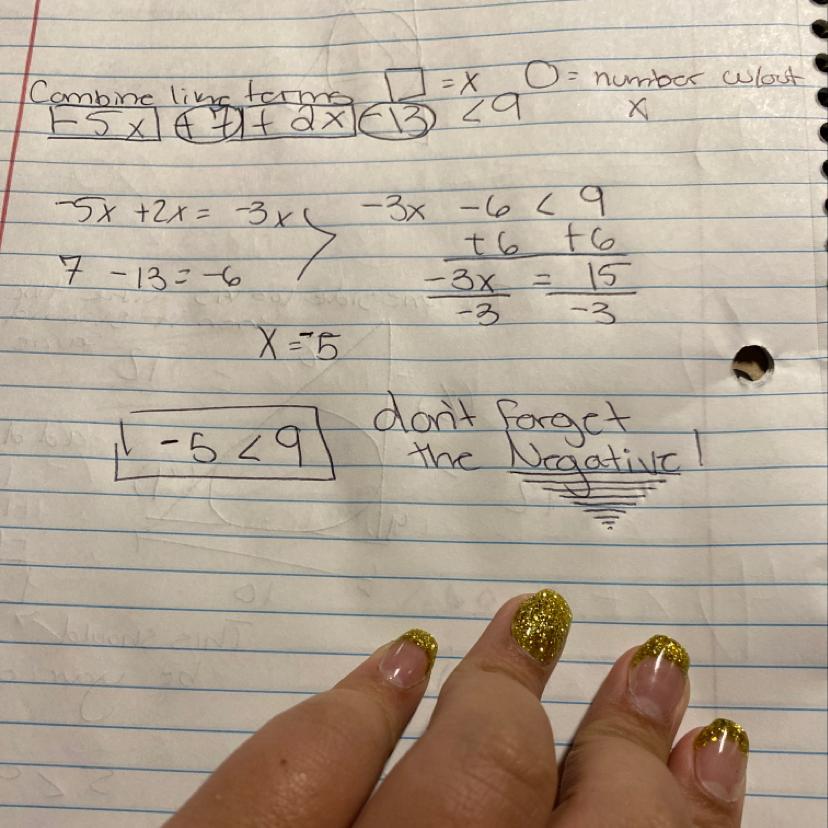 Combine like terms □ = x ○ = number w/out x
-5x +7 + 2x -13 < 9
-5x + 2x = -3x
7 - 13 = -6
-3x - 6 < 9
+6 +6
-3x = 15
-3 -3
x = -5
-5 < 9
don't forget
the Negative!